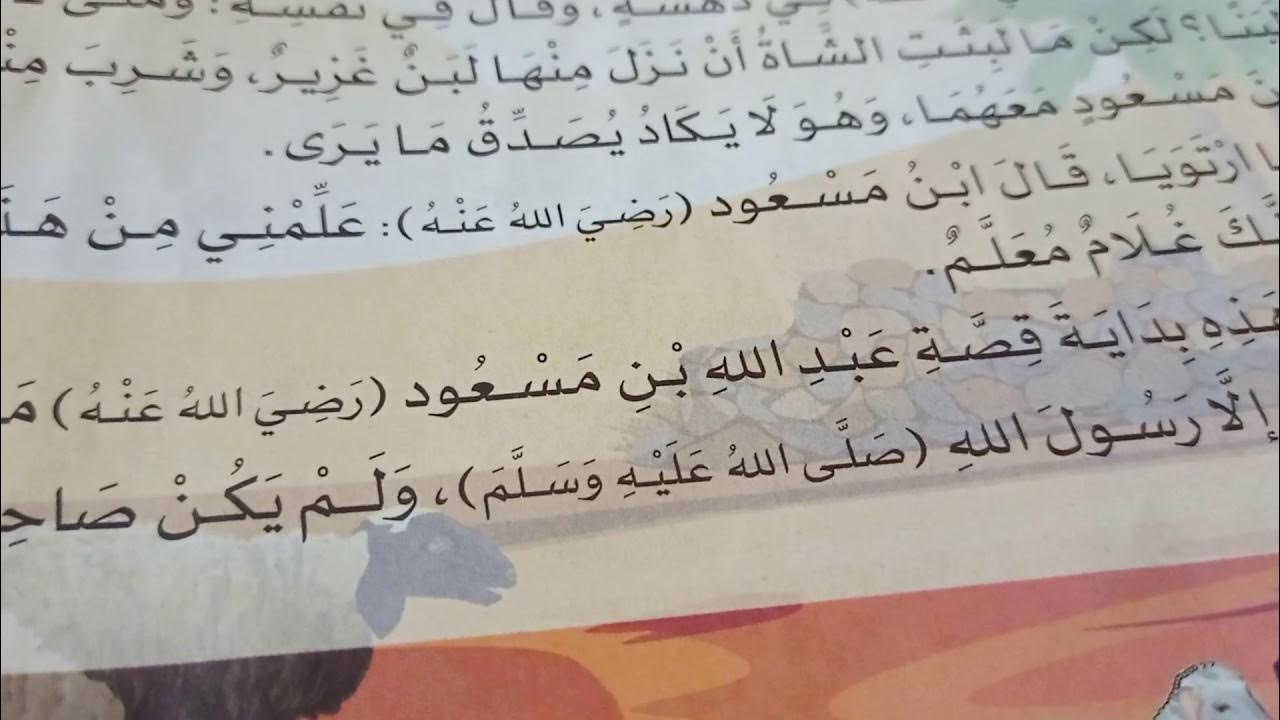 فِي دَهْشَةٍ، وَقَالَ فِي نَفْسِهِ: وَمَتَى
لَكِنْ مَا لَبِثَتِ الشَّاةُ أَنْ نَزَلَ مِنْهَا لَبَنٌ غَزِيرٌ، وَشَرِبَ
مَسْعُودٍ مَعَهُمَا، وَهُوَ لَا يَكَادُ يُصَدِّقُ مَا يَرَى.
ارْتَوَيَا، قَالَ ابْنُ مَسْعُود (رَضِيَ اللهُ عَنْهُ): عَلِّمْنِي مِنْ
غُلَامٌ مُعَلَّمٌ.
بِدَايَةَ قِصَّةِ عَبْدِ اللهِ بْنِ مَسْعُود (رَضِيَ اللهُ عَنْهُ)
إِلَّا رَسُولَ اللهِ (صَلَّى اللهُ عَلَيْهِ وَسَلَّمَ)، وَلَمْ يَكُنْ